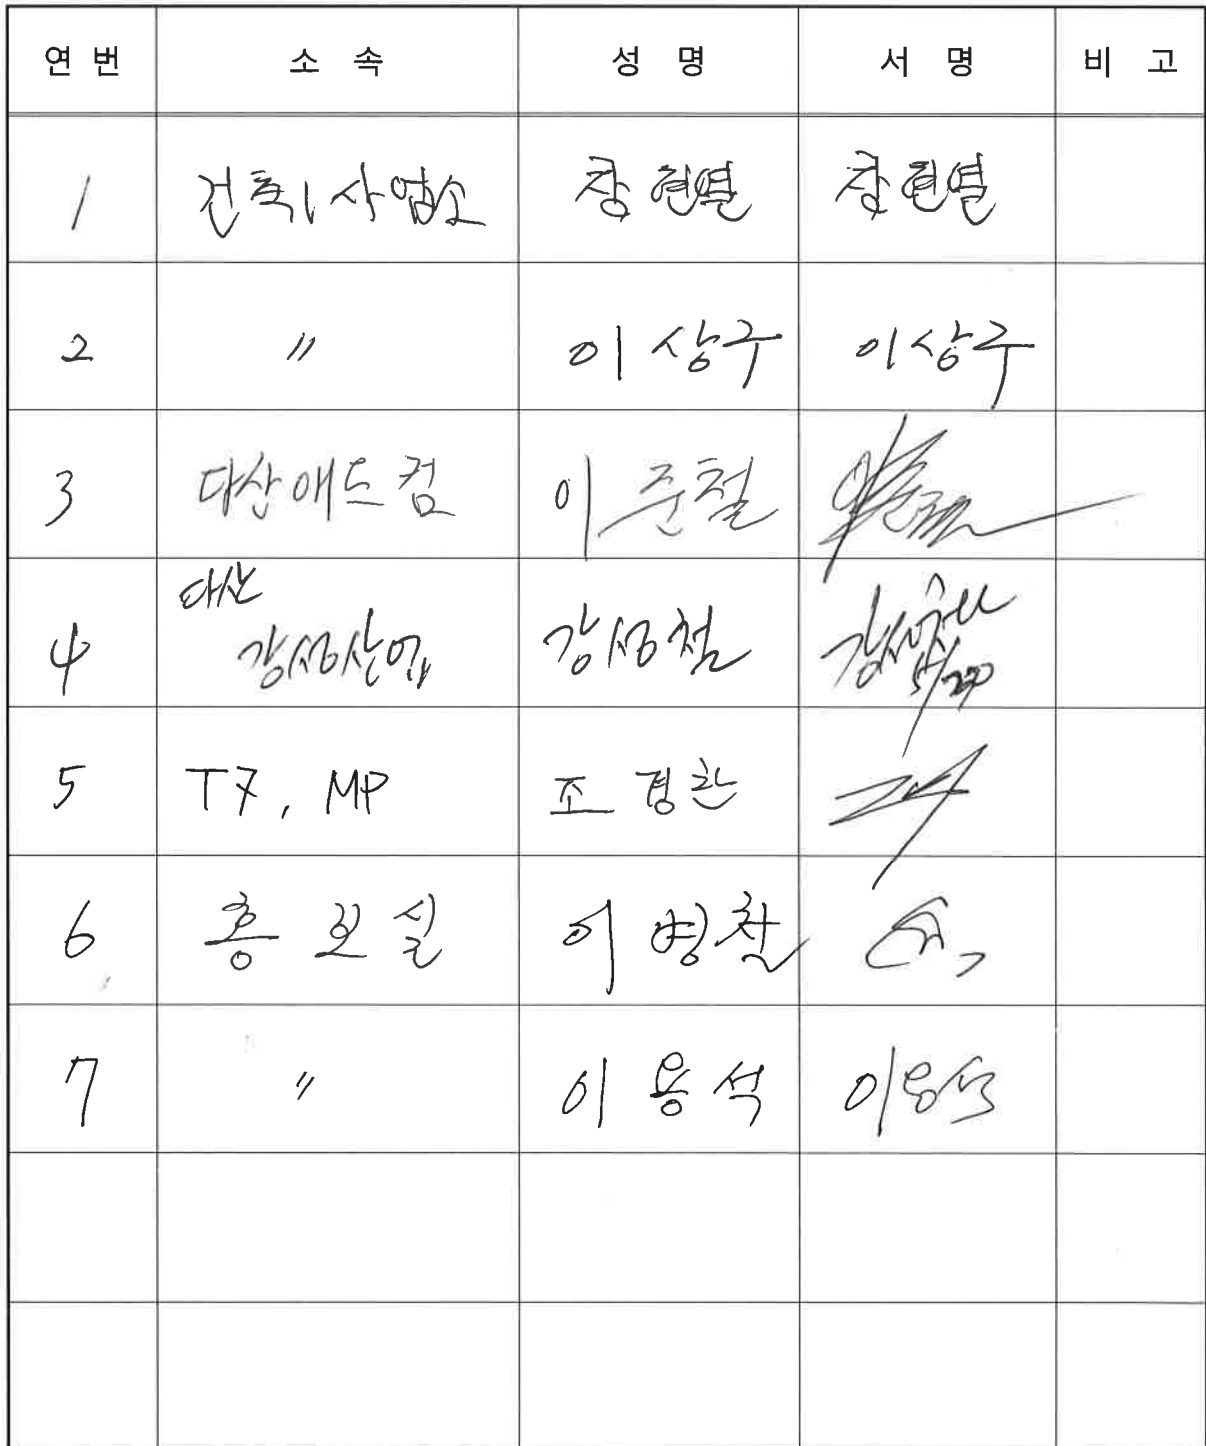 연 번 소 속 성 명 서 명 비 고
1 건축1사업소 장현열 장현열
2 〃 이상구 이상구
3 다산애드컴 이준철
다산
4 강성산업 강성철
5 T7, MP 조경찬
6 홍보실 이병찬
7 〃 이용석 이용석